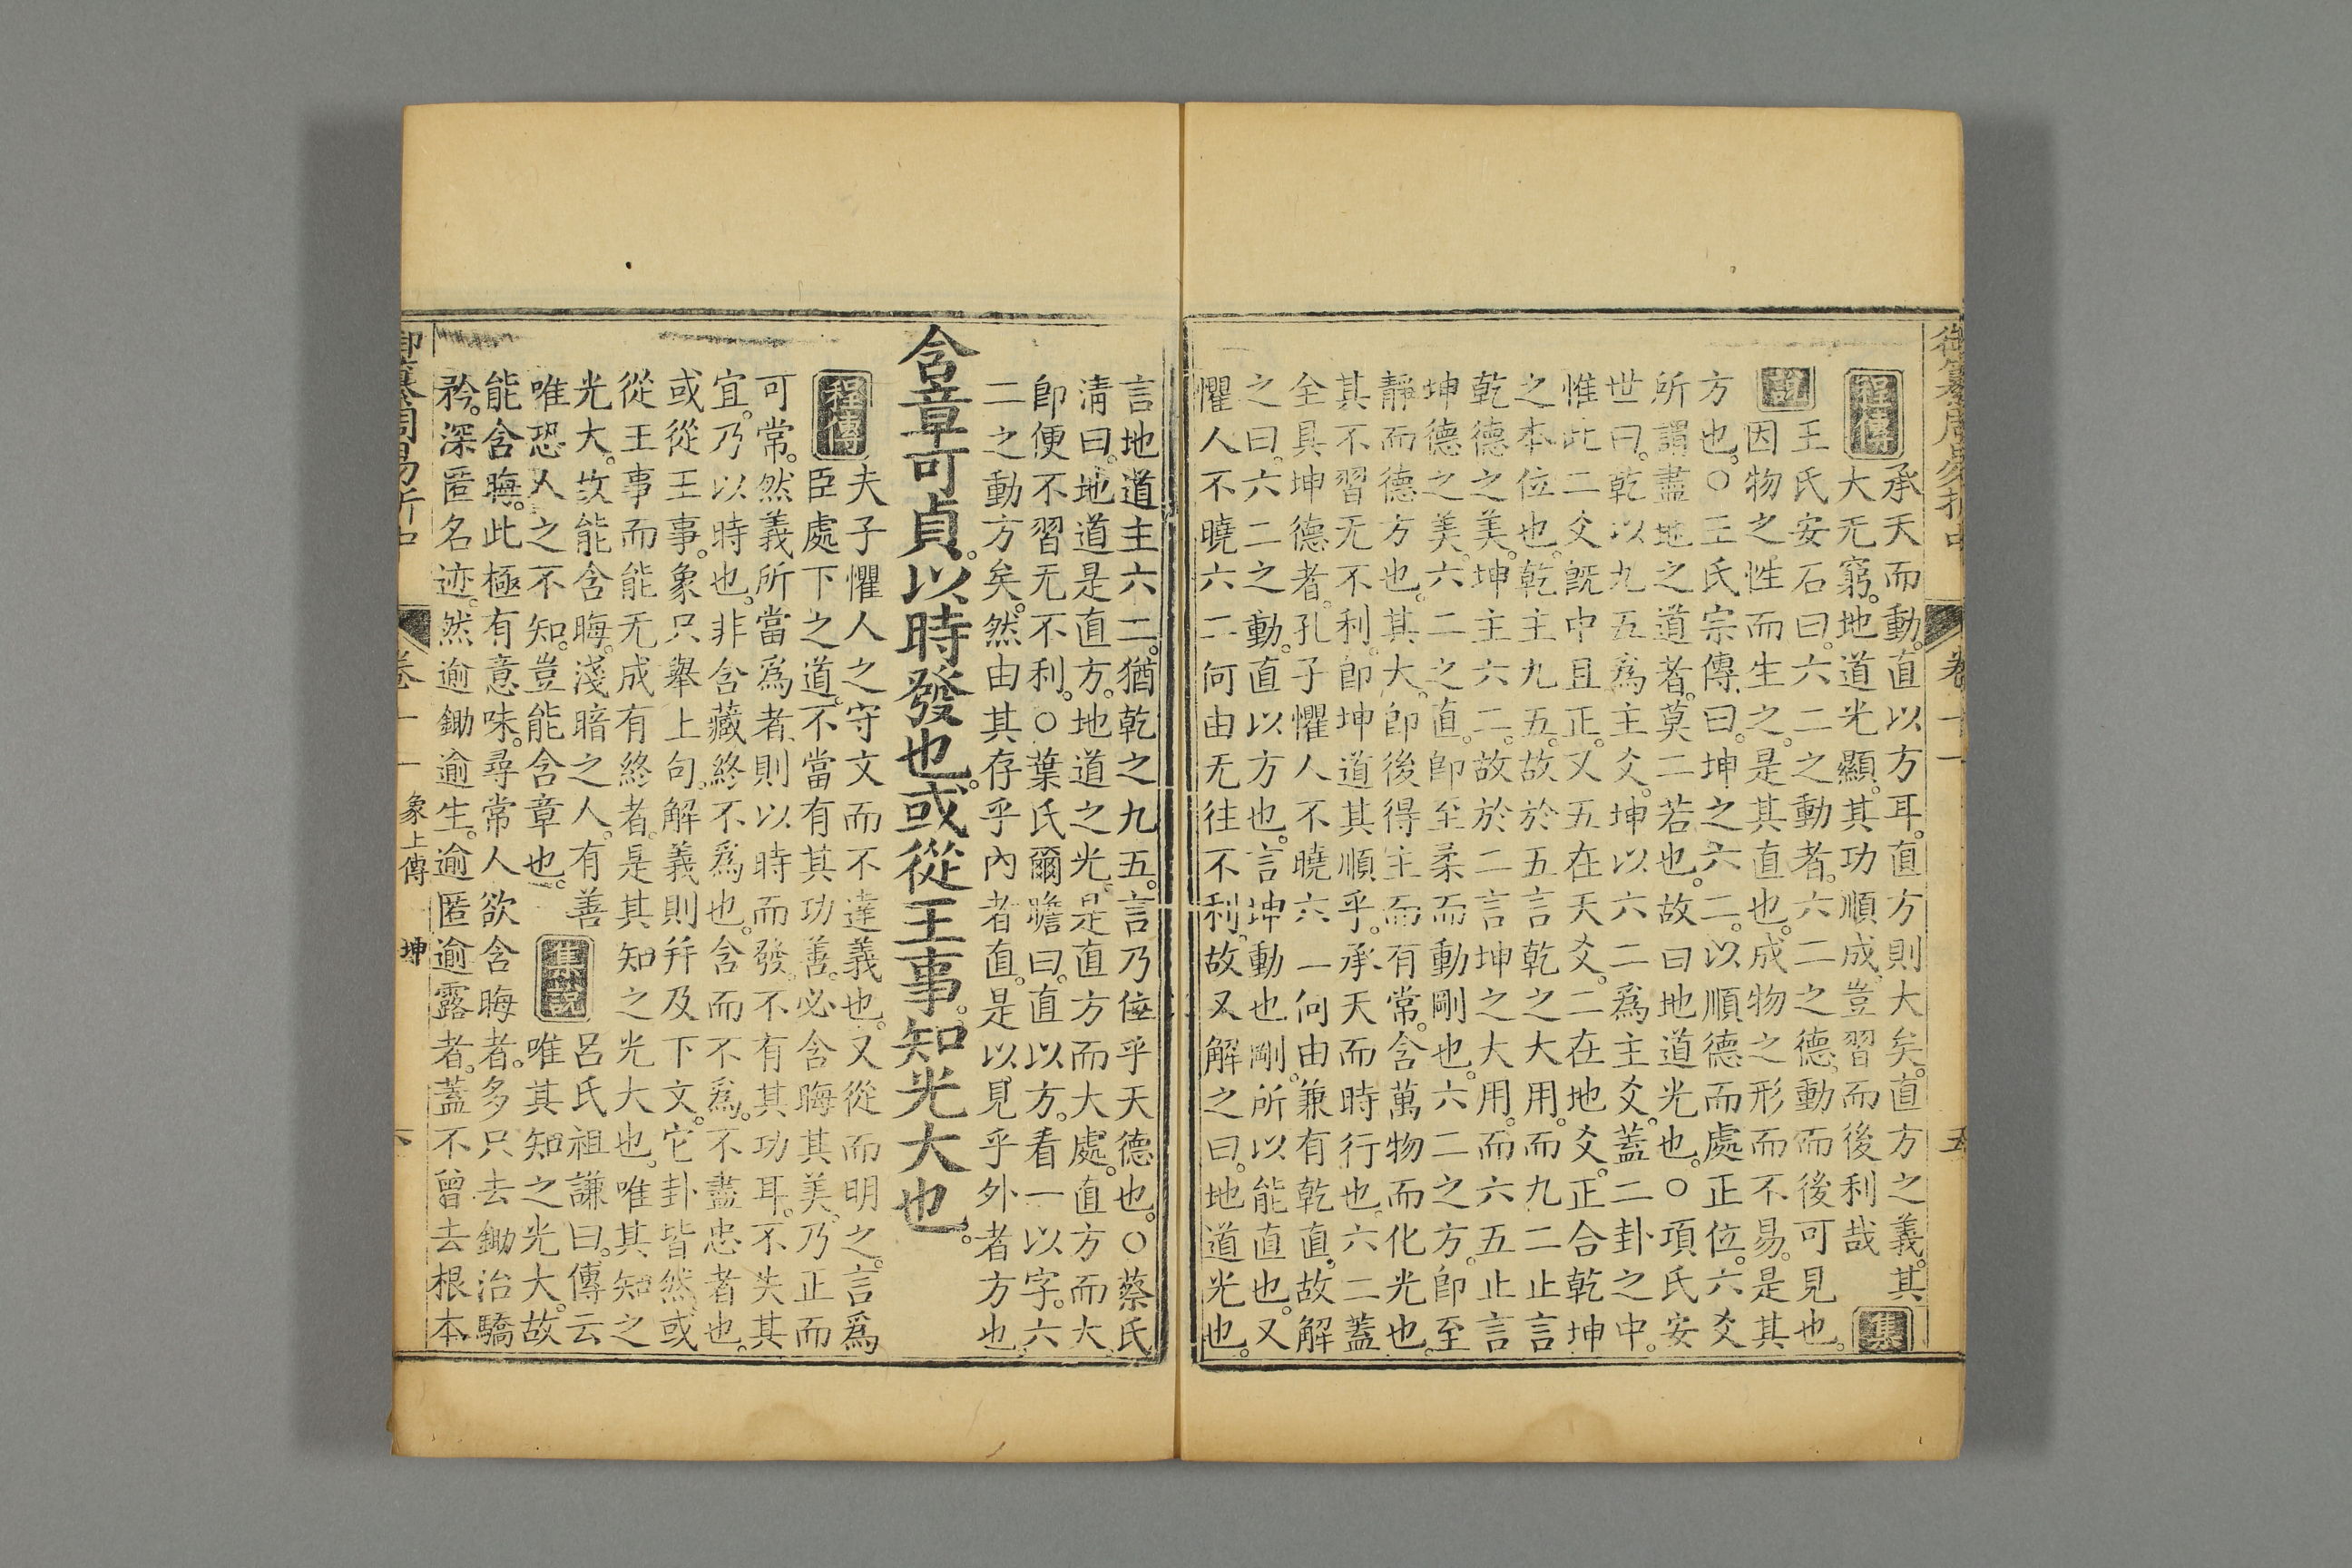 御纂周易折中 卷十一 五
程傳 承天而動。直以方耳。直方則大矣。直方之義。其
大无窮。地道光顯。其功順成。豈習而後利哉 集
說 王氏安石曰。六二之動者。六二之德。動而後可見也。
因物之性而生之。是其直也。成物之形而不易。是其
方也。○王氏宗傳曰。坤之六二。以順德而處正位。六爻
所謂盡地之道者。莫二若也。故曰地道光也。○項氏安
世曰。乾以九五爲主爻。坤以六二爲主爻。蓋二卦之中。
惟此二爻旣中且正。又五在天爻。二在地爻。正合乾坤
之本位也。乾主九五。故於五言乾之大用。而九二止言
乾德之美。坤主六二。故於二言坤之大用。而六五止言
坤德之美。六二之直。卽至柔而動剛也。六二之方。卽至
靜而德方也。其大。卽後得主而有常。含萬物而化光也。
其不習无不利。卽坤道其順乎。承天而時行也。六二蓋
全具坤德者。孔子懼人不曉六二何由兼有乾直。故解
之曰。六二之動。直以方也。言坤動也剛。所以能直也。又
懼人不曉六二何由无往不利。故又解之曰。地道光也。
言地道主六二。猶乾之九五。言乃位乎天德也。○蔡氏
淸曰。地道是直方。地道之光。是直方而大處。直方而大。
卽便不習无不利。○葉氏爾瞻曰。直以方。看一以字。六
二之動方矣。然由其存乎內者直。是以見乎外者方也。
含章可貞。以時發也。或從王事。知光大也。
程傳 夫子懼人之守文而不達義也。又從而明之。言爲
臣處下之道。不當有其功善。必含晦其美。乃正而
可常。然義所當爲者。則以時而發。不有其功耳。不失其
宜。乃以時也。非含藏終不爲也。含而不爲。不盡忠者也。
或從王事。象只舉上句。解義則幷及下文。它卦皆然。或
從王事而能无成有終者。是其知之光大也。唯其知之
光大。故能含晦。淺暗之人。有善
唯恐人之不知。豈能含章也。 集說 呂氏祖謙曰。傳云
唯其知之光大。故
能含晦。此極有意味。尋常人欲含晦者。多只去鋤治驕
矜。深匿名迹。然逾鋤逾生。逾匿逾露者。蓋不曾去根本
卷十一 象上傳 坤